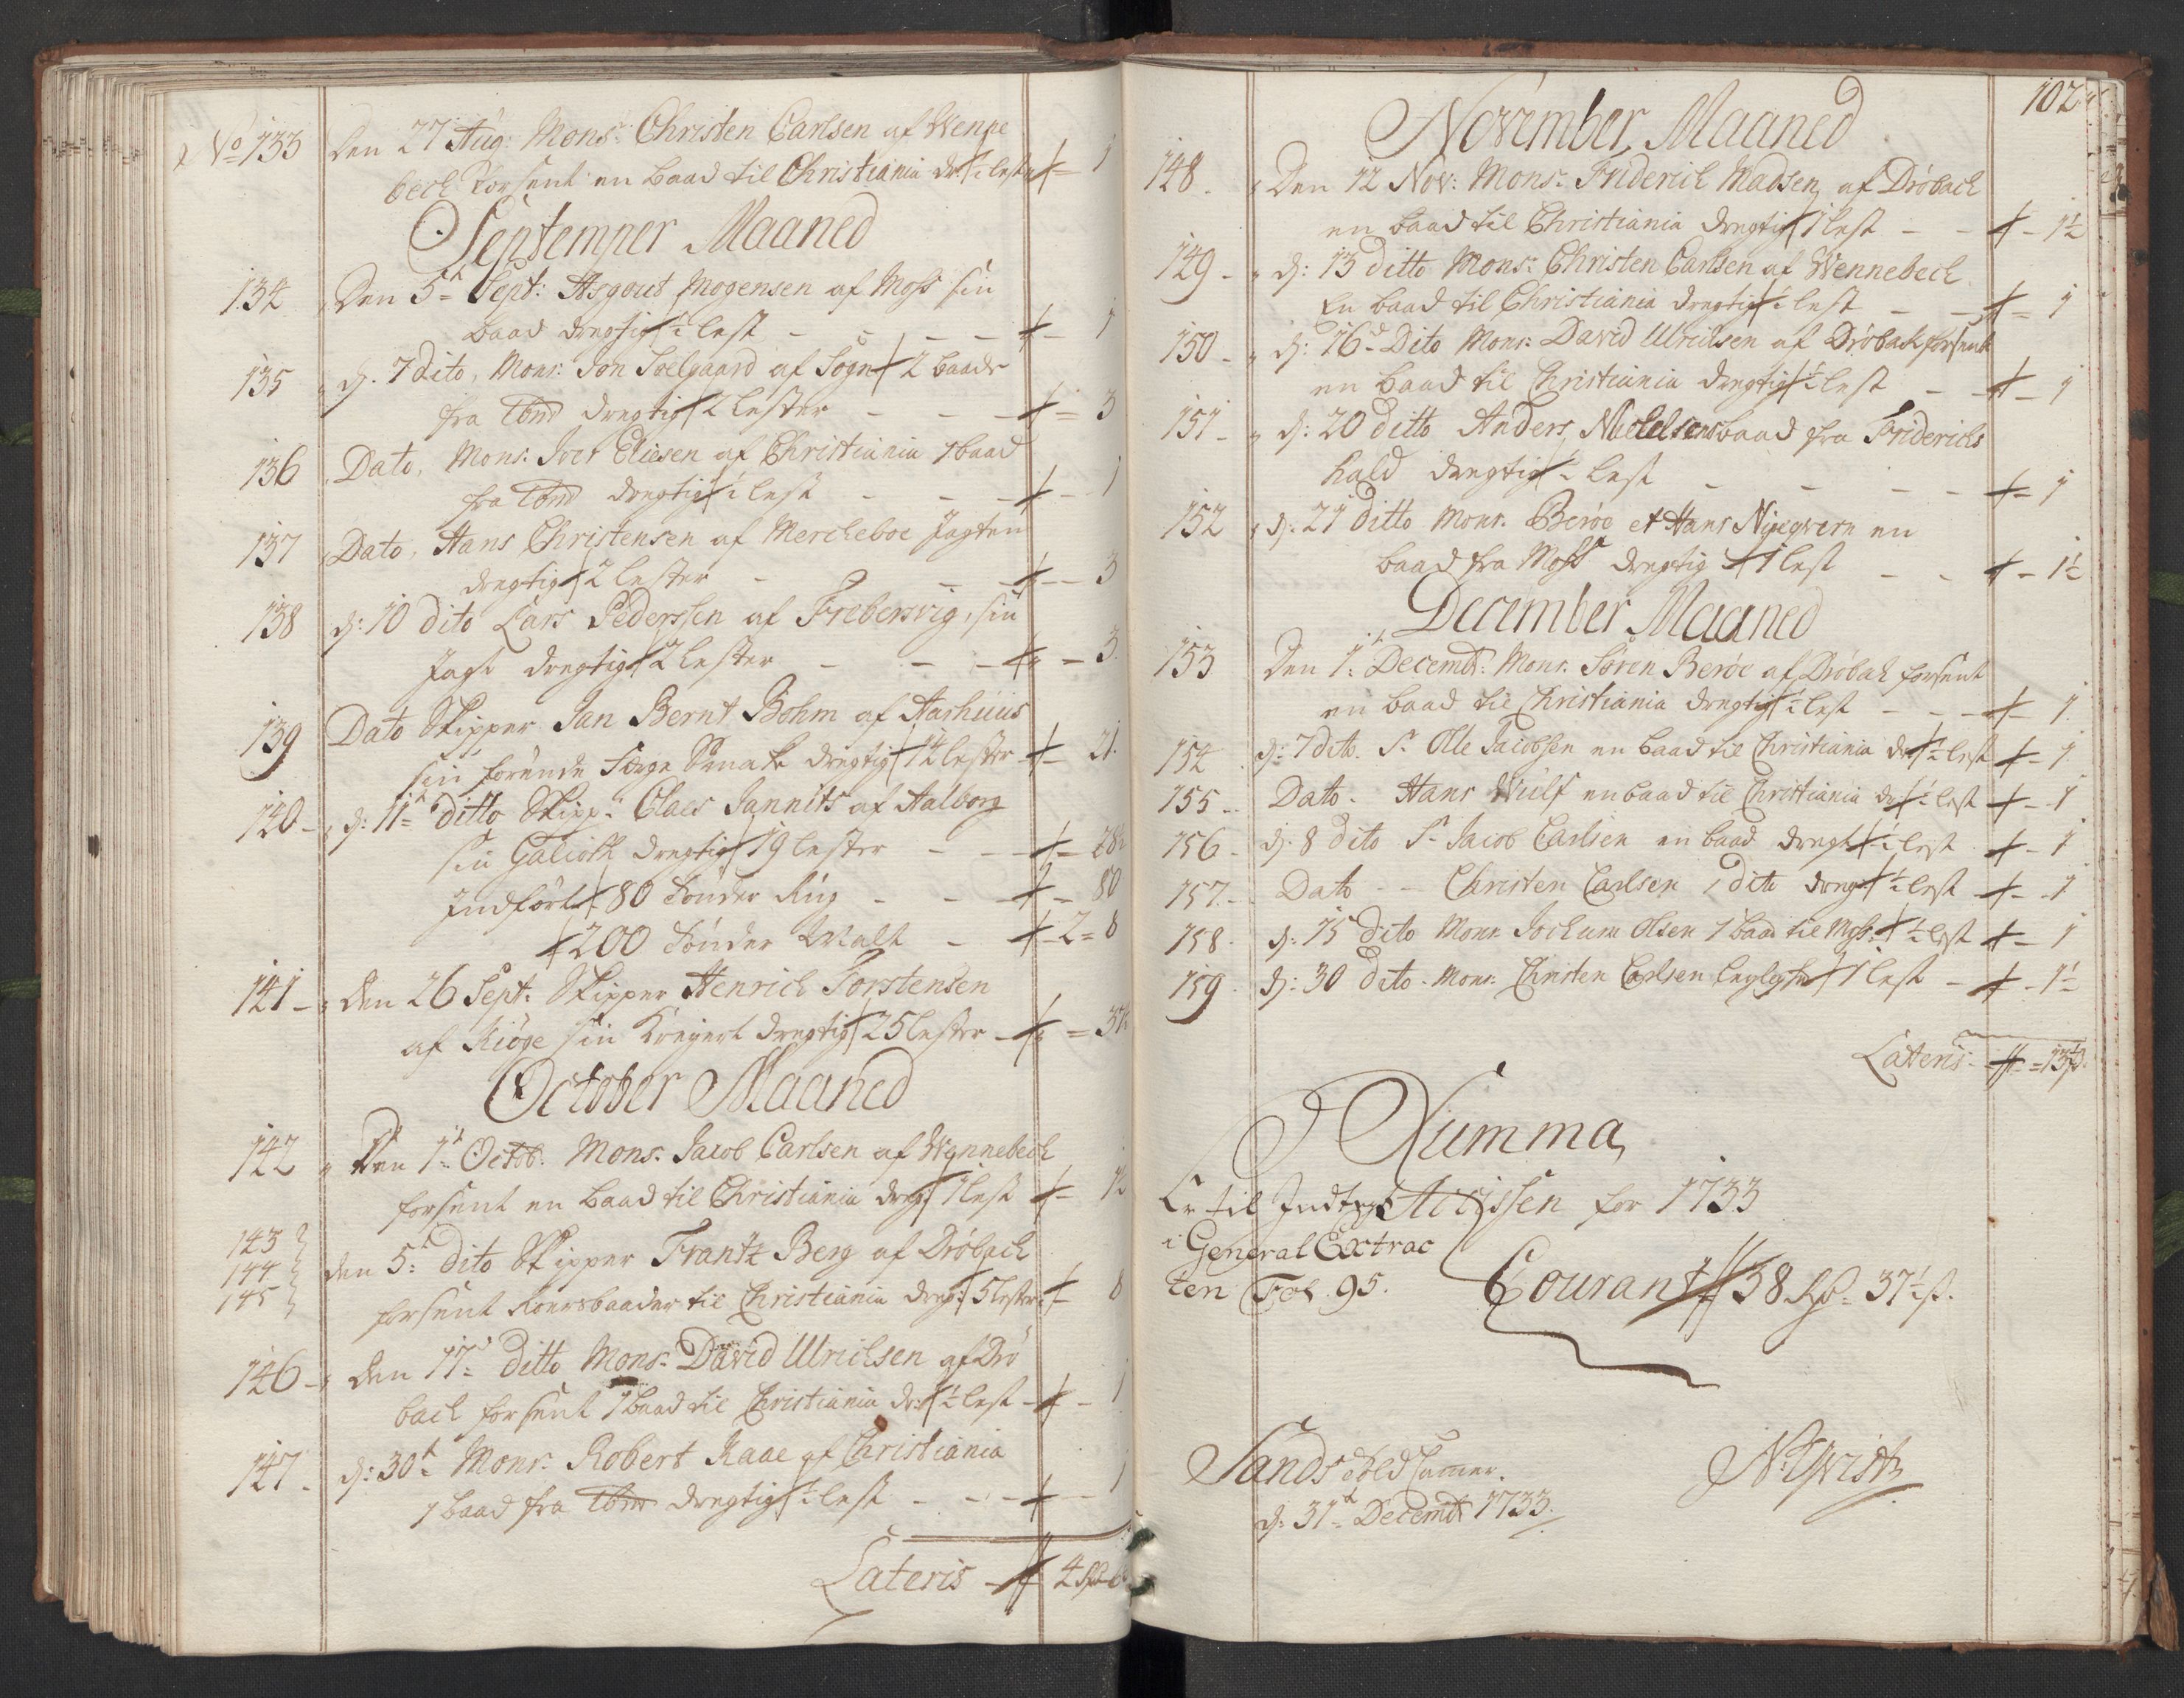 No 133 Den 27 Aug: Mons:r Christen Carlsen af Wenne
bech forsent en baad til Christiania dr: ½ lest 1
Septemper Maaned
134 Den 5t Sept: Asgout Mogensen af Moss sin
baad dregtig ½ lest - - - 1
135 d: 7 dito, Mons: Jon Soelgaard af Sogn 2 baade
fra dregtig 2 lester - - - 3
136 Dato, Mons: Iver Eliesen af Christiania 1 baad
fra dregtig ½ lest - - - 1
137 Dato, Hans Christensen af Mercheboe Jagten
dregtig 2 lester - - - 3
138 d: 10 dito Lars Pederssen af Frebersvig, sin
Jagt dregtig 2 lester - - - 3
139 Dato Skipper Jan Bernt Bohm af Aarhuus
sin førende dregtig 14 lester 21
140 - d: 11t ditto Skipp:r Claes Jannits af Aalborg
sin Galioth dregtig 19 lester - - 28½
Indført 80 Tønder Rug - - 80
200 Tønder Malt - 2 = 8
141 - den 26 Sept: Skipper Henrich Torstensen
af Kiøge sin Kreyert dregtig 25 lester - 37½
October Maaned
142 Den 1t Octob: Mons: Jacob Carlsen af Wynnebech
forsent en baad til Christiania dreg: 1 lest 1½
143
144 den 5t dito Skipper Frantz Berg af Drøbach
145
forsent baader til Christiania dreg: 5 lester 8
146 - den 17 ditto Mons: David Ulrichsen af Drø
bach forsent 1 baad til Christiania dr: ½ lest - 1
147 - d: 30t Mons: Robert Kaae af Christiania
1 baad fra dregtig ½ lest - - - 1
Lateris - 4
102
November Maaned
148. Den 12 Nov: Mons:r Friderich Madsen af Drøbach
en baad til Christiania dregtig 1 lest - - 1½
149 - d: 13 ditto Mons: Christen Carlsen af Wennebech
En baad til Christiania dregtig ½ lest - - 1
150 - d: 16d Dito Mons: David Ulrichsen af Drøbak forsent
en baad til Christiania dregtig ½ lest - - 1
151 - d: 20 ditto Anders Nielsens baad fra Friderichs
hald dregtig ½ lest - - - - 1
152 d: 21 ditto Mons. Berøe et Hans en
baad fra Moss dregtig 1 lest - - 1½
December Maaned
153 Den 1t Decembr: Mons. Søren Berøe af Drøbak forsent
en baad til Christiania dregtig ½ lest - - - 1.
154 d: 7 dito. Sr Olle Jacobsen en baad til Christiania dr: ½ lest 1.
155 - Dato. Hans Wulf en baad til Christiania dr: ½ lest - 1
156 - d: 8 dito Sr Jacob Carlsen en baad dregt: ½ lest - 1
157 - Dato - - Christen Carlsen 1 dito dregt: ½ lest - 1
158. d: 15 dito Mons. Jochum Olsen 1 baad til Moss ½ lest - 1
159. d: 30 dito. Mons: Christen Carlsen 1 lest - 1½
Lateris - 13½ ß.
Summa
Er til Indtegt Accissen for 1733
i General Extrac
ten Fol. 95. Courant 38 Rd. 37½ ß.
Sands Told Camer.
d: 31t Decembr 1733.